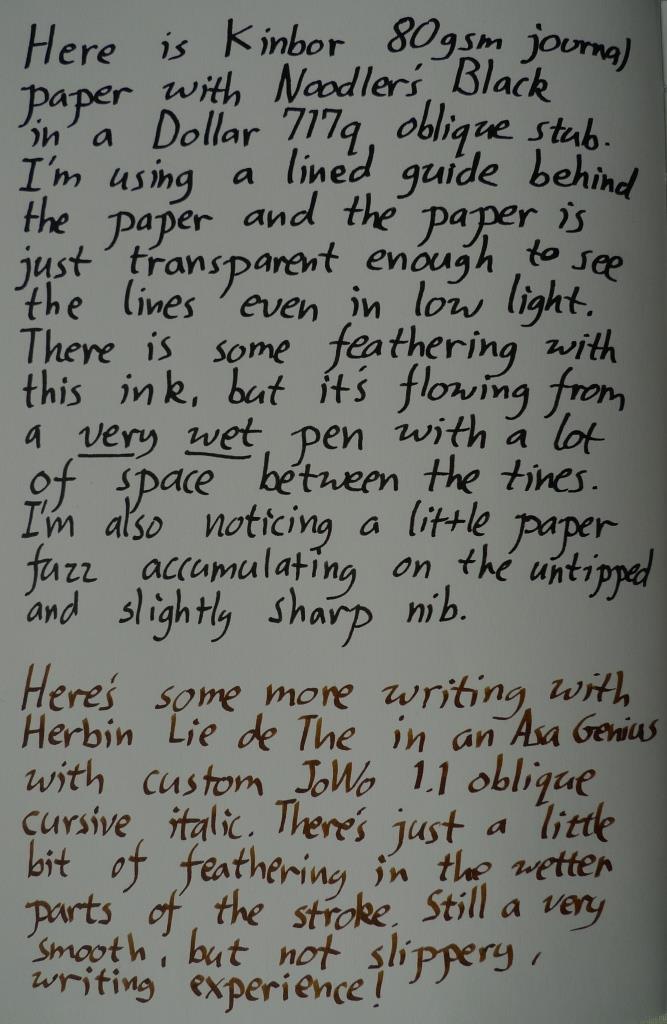 Here is Kinbor 80gsm journal
paper with Noodler's Black
in a Dollar 717q oblique stub.
I'm using a lined guide behind
the paper and the paper is
just transparent enough to see
the lines even in low light.
There is some feathering with
this ink, but it's flowing from
a very wet pen with a lot
of space between the tines.
I'm also noticing a little paper
fuzz accumulating on the untipped
and slightly sharp nib.
Here's some more writing with
Herbin Lie de The in an Asa Genius
with custom JoWo 1.1 oblique
cursive italic. There's just a little
bit of feathering in the wetter
parts of the stroke. Still a very
smooth, but not slippery,
writing experience!